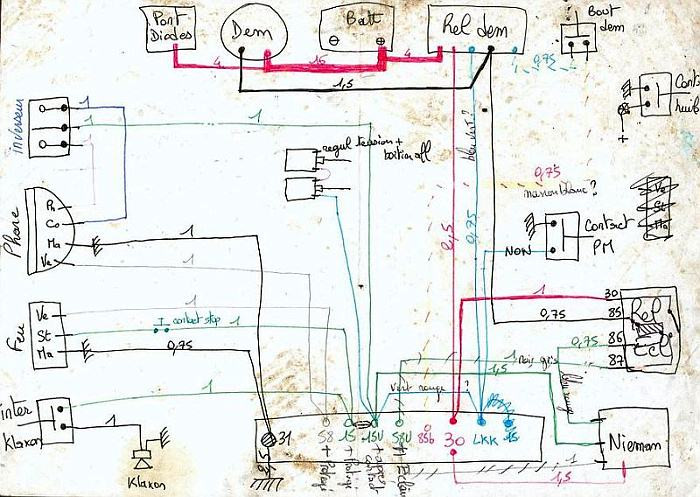 Pont
Diodes
Dem
Batt
Rel dem
Bout
dem
4
15
4
1,5
0,75
inverseur
1
1
1
regul tension +
boitier all
bleu vert ?
Cont
huile
+
0,75
marron blanc ?
Ve
St
Ma
Phare
Ph
Co
Ma
Ve
1
1
2,5
0,75
NON
Contact
PM
1
30
85
86
87
Rel
0,75
0,75
Feu
Ve
St
Ma
1
contact stop
1
0,75
1 Noir gris
1,5
bleu rouge
inter
Klaxon
1
1
Klaxon
Vert rouge ?
31
58
15
15U
58U
85b
30
LKK
15
2,5
+ Protégé
+ Protégé
+ après
contact
1,5
Nieman